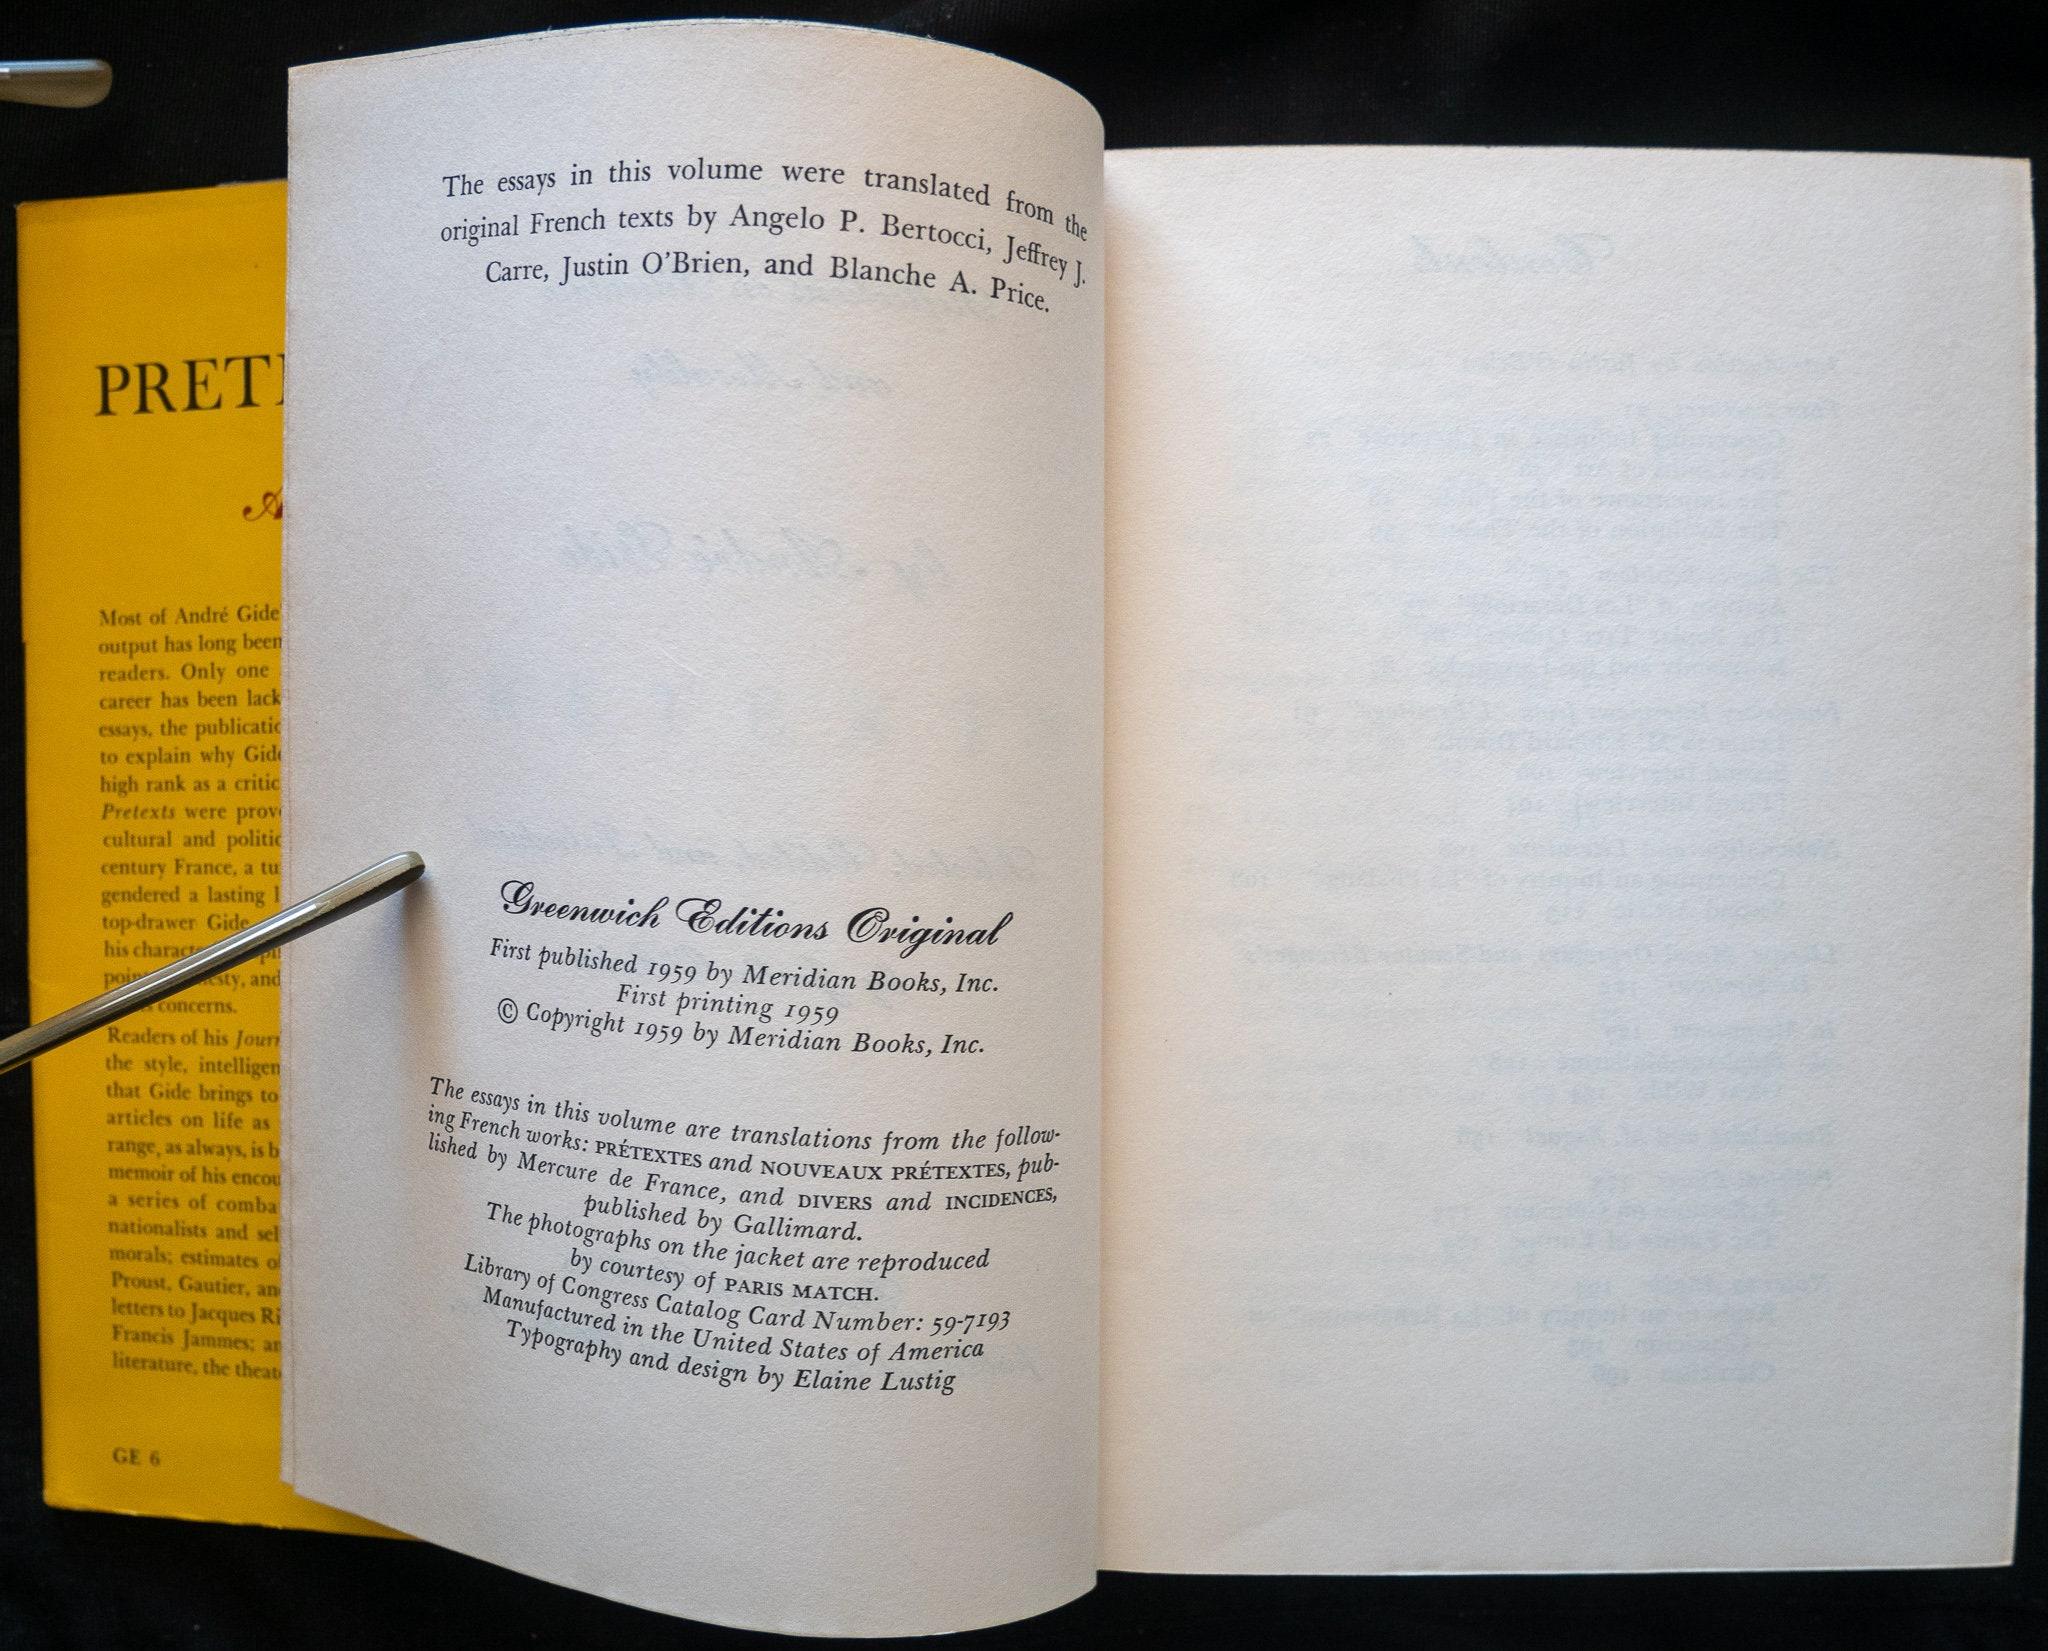 PRET
A
Most of André Gide'
output has long been
readers. Only one
career has been lack
essays, the publicatio
to explain why Gide
high rank as a critic
Pretexts were prov
cultural and politic
century France, a tu
gendered a lasting l
top-drawer Gide
his charact
poin sty, and
concerns.
Readers of his Journ
the style, intelligen
that Gide brings to
articles on life as
range, as always, is b
memoir of his encou
a series of comba
nationalists and sel
morals; estimates of
Proust, Gautier, an
letters to Jacques Ri
Francis Jammes; an
literature, the theat
GE 6
The essays in this volume were translated from the
original French texts by Angelo P. Bertocci, Jeffrey J.
Carre, Justin O'Brien, and Blanche A. Price.
Greenwich Editions Original
First published 1959 by Meridian Books, Inc.
First printing 1959
© Copyright 1959 by Meridian Books, Inc.
The essays in this volume are translations from the follow-
ing French works: PRÉTEXTES and NOUVEAUX PRÉTEXTES, pub-
lished by Mercure de France, and DIVERS and INCIDENCES,
published by Gallimard.
The photographs on the jacket are reproduced
by courtesy of PARIS MATCH.
Library of Congress Catalog Card Number: 59-7193
Manufactured in the United States of America
Typography and design by Elaine Lustig